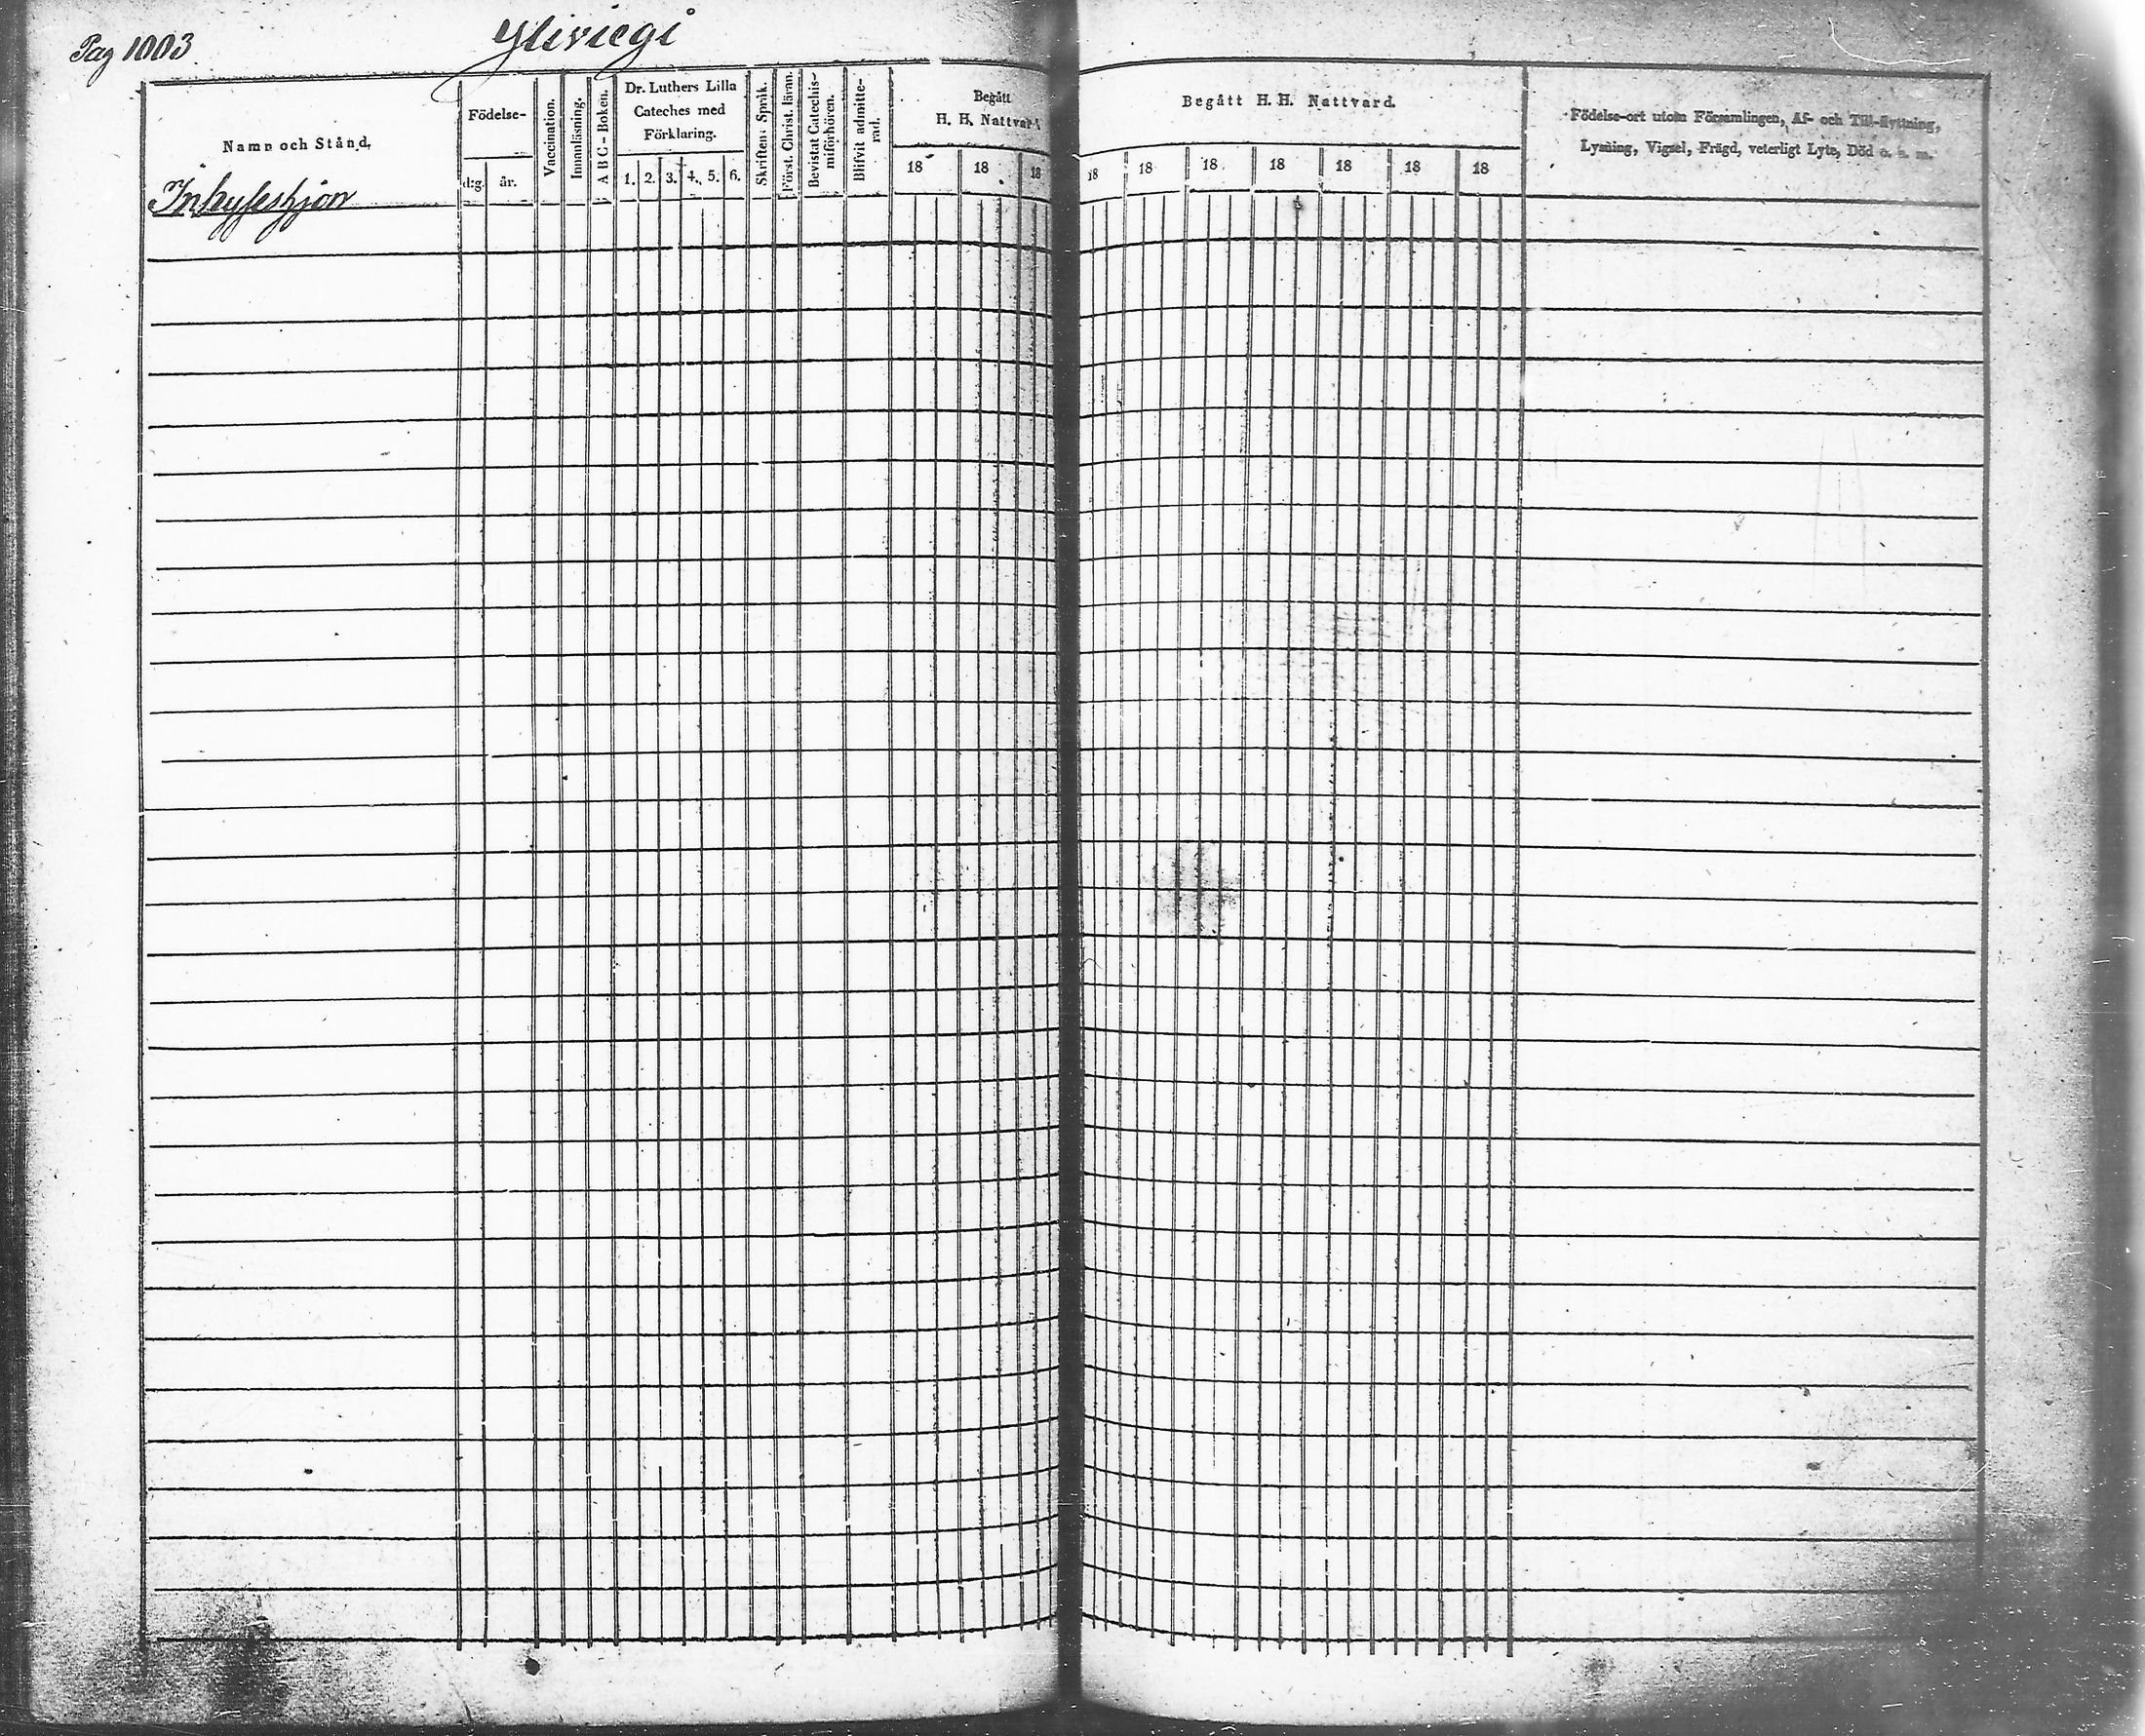 Pag 1003
Yliviegi
Namn och Stånd.
Födelse-
d:g. år.
Vaccination.
Innanläsning.
A B C - Boken.
Dr. Luthers Lilla
Cateches med
Förklaring.
1. 2. 3. 4. 5. 6.
Skriftens Språk.
Först. Christ. läran.
Bevistat Catechis-
miförhören.
Blifvit admitte-
rad.
Begått
H. H. Nattvard.
18 18 18
Begått H. H. Nattvard.
18 18 18 18 18 18 18
Födelse-ort utom Församlingen, Af- och Till-flyttning,
Lysning, Vigsel, Frägd, veterligt Lyte, Död o. s. m.